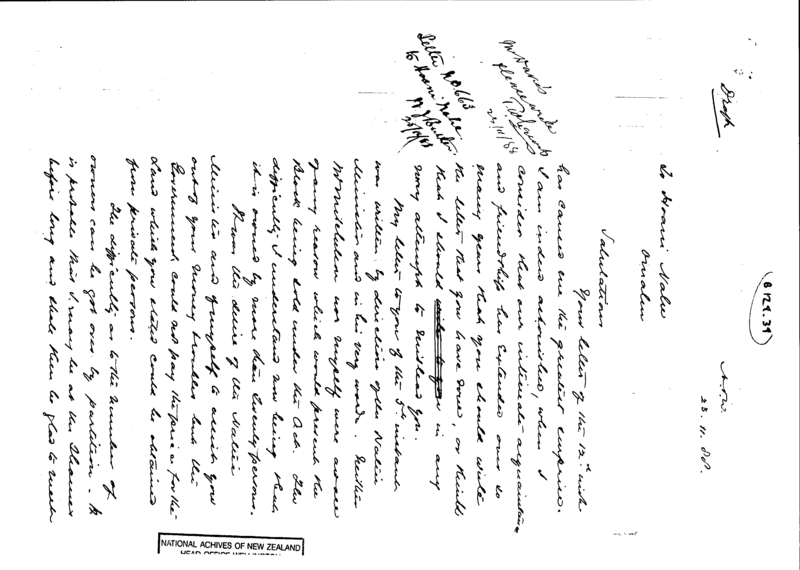 Draft
B 129.39
N.O.W.
23.11.88.
To Hoani Nahe
Omahu
Salutations
Your letter of the 12th inst.
has caused me the greatest surprise.
I am indeed astonished, when I
consider that our intimate acquaintance
and friendship has extended over so
many years that you should write
the letter that you have done, or think
that I should in any
way attempt to mislead you.
My letter to you of the 5th instant
was written by direction of the Native
Minister and in his very words. Neither
Mr Mitchelson nor myself were aware
of any reason which would prevent the
Block being sold under the Act. The
difficulty I understand now being that
it is owned by more than twenty persons.
Knew the desire of the Native
Minister and of myself to assist you
out of your money troubles but the
Government could not pay the price for the
Land which you stated could be obtained
from private persons.
The difficulty as to the number of
owners can be got over by partition. It
is probable that I may be at the Thames
before long and shall then be glad to meet
Mr Davis
please write
23/11/88
Letter No 663
to Hoani Nahe
23/11/88
NATIONAL ACHIVES OF NEW ZEALAND
HEAD OFFICE WELLINGTON